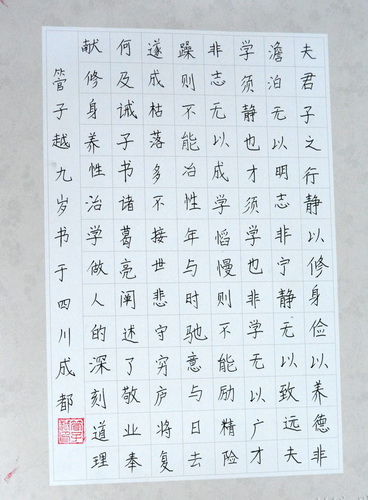 夫君子之行静以修身俭以养德非
澹泊无以明志非宁静无以致远夫
学须静也才须学也非学无以广才
非志无以成学慆慢则不能励精险
躁则不能冶性年与时驰意与日去
遂成枯落多不接世悲守穷庐将复
何及诫子书诸葛亮阐述了敬业奉
献修身养性治学做人的深刻道理
管子越九岁书于四川成都